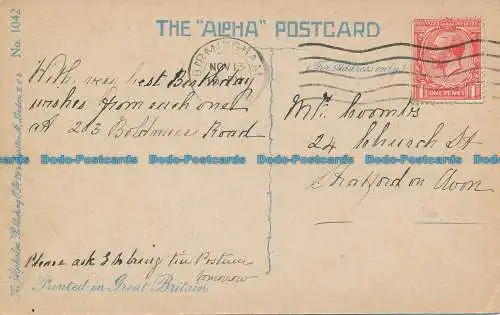 THE "ALPHA" POSTCARD
No. 1042
BIRMINGHAM
NOV 13
(For Address only.)
ONE PENNY
With very best Birthday
wishes from each one
at 203 Boldmere Road
Mr Coombs
24 Church St
Stratford on Avon
Please ask to bring the
tomorrow
Printed in Great Britain
The Alphalsa Publishing Co. Ltd.
Dodo-Postcards Dodo-Postcards Dodo-Postcards Dodo-Postcards